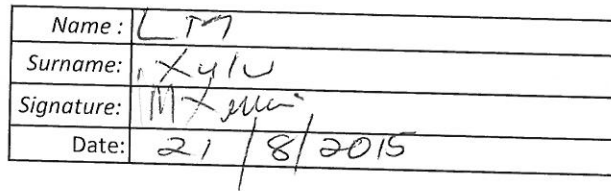 Name : LM
Surname: Xulu
Signature:
Date: 21/8/2015